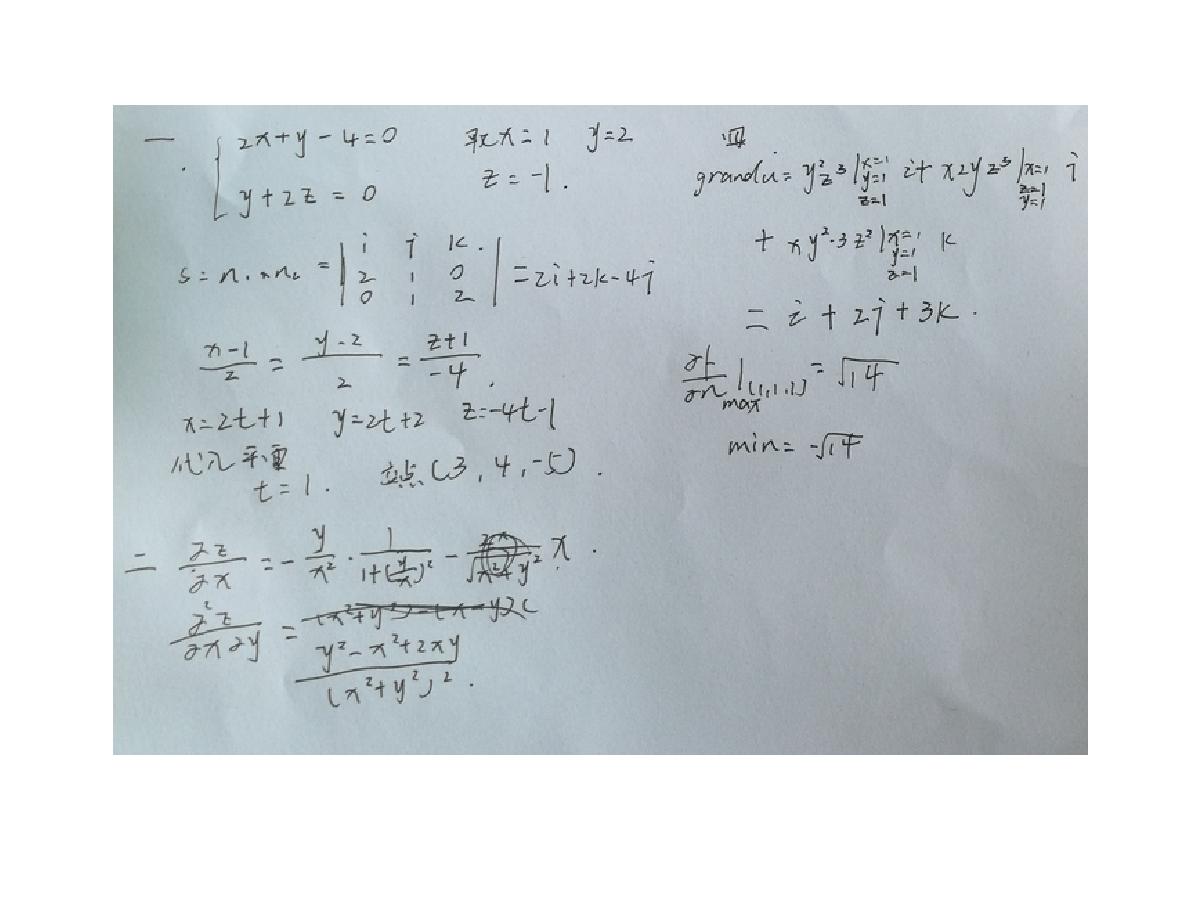 一. { 2x+y-4=0 取x=1 y=2
y+2z=0 z=-1.
s=n₁×n₂ = | i j k. |
| 2 1 0 |
| 0 1 2 | =2i+2k-4j
(x-1)/2 = (y-2)/2 = (z+1)/-4.
x=2t+1 y=2t+2 z=-4t-1
代入平面
t=1. 交点(3,4,-5).
二 ∂z/∂x = -y/x² · 1/(1+(y/x)²) - x/(x²+y²).
∂²z/∂x∂y = (y²-x²+2xy)/(x²+y²)².
四
grandu= y²z³|x=1 y=1 z=1 i+ x2yz³|x=1 z=1 y=1 j
+ xy²·3z²|x=1 y=1 z=1 k
= i+2j+3k.
∂f/∂n|(1,1,1) max = √14
min= -√14